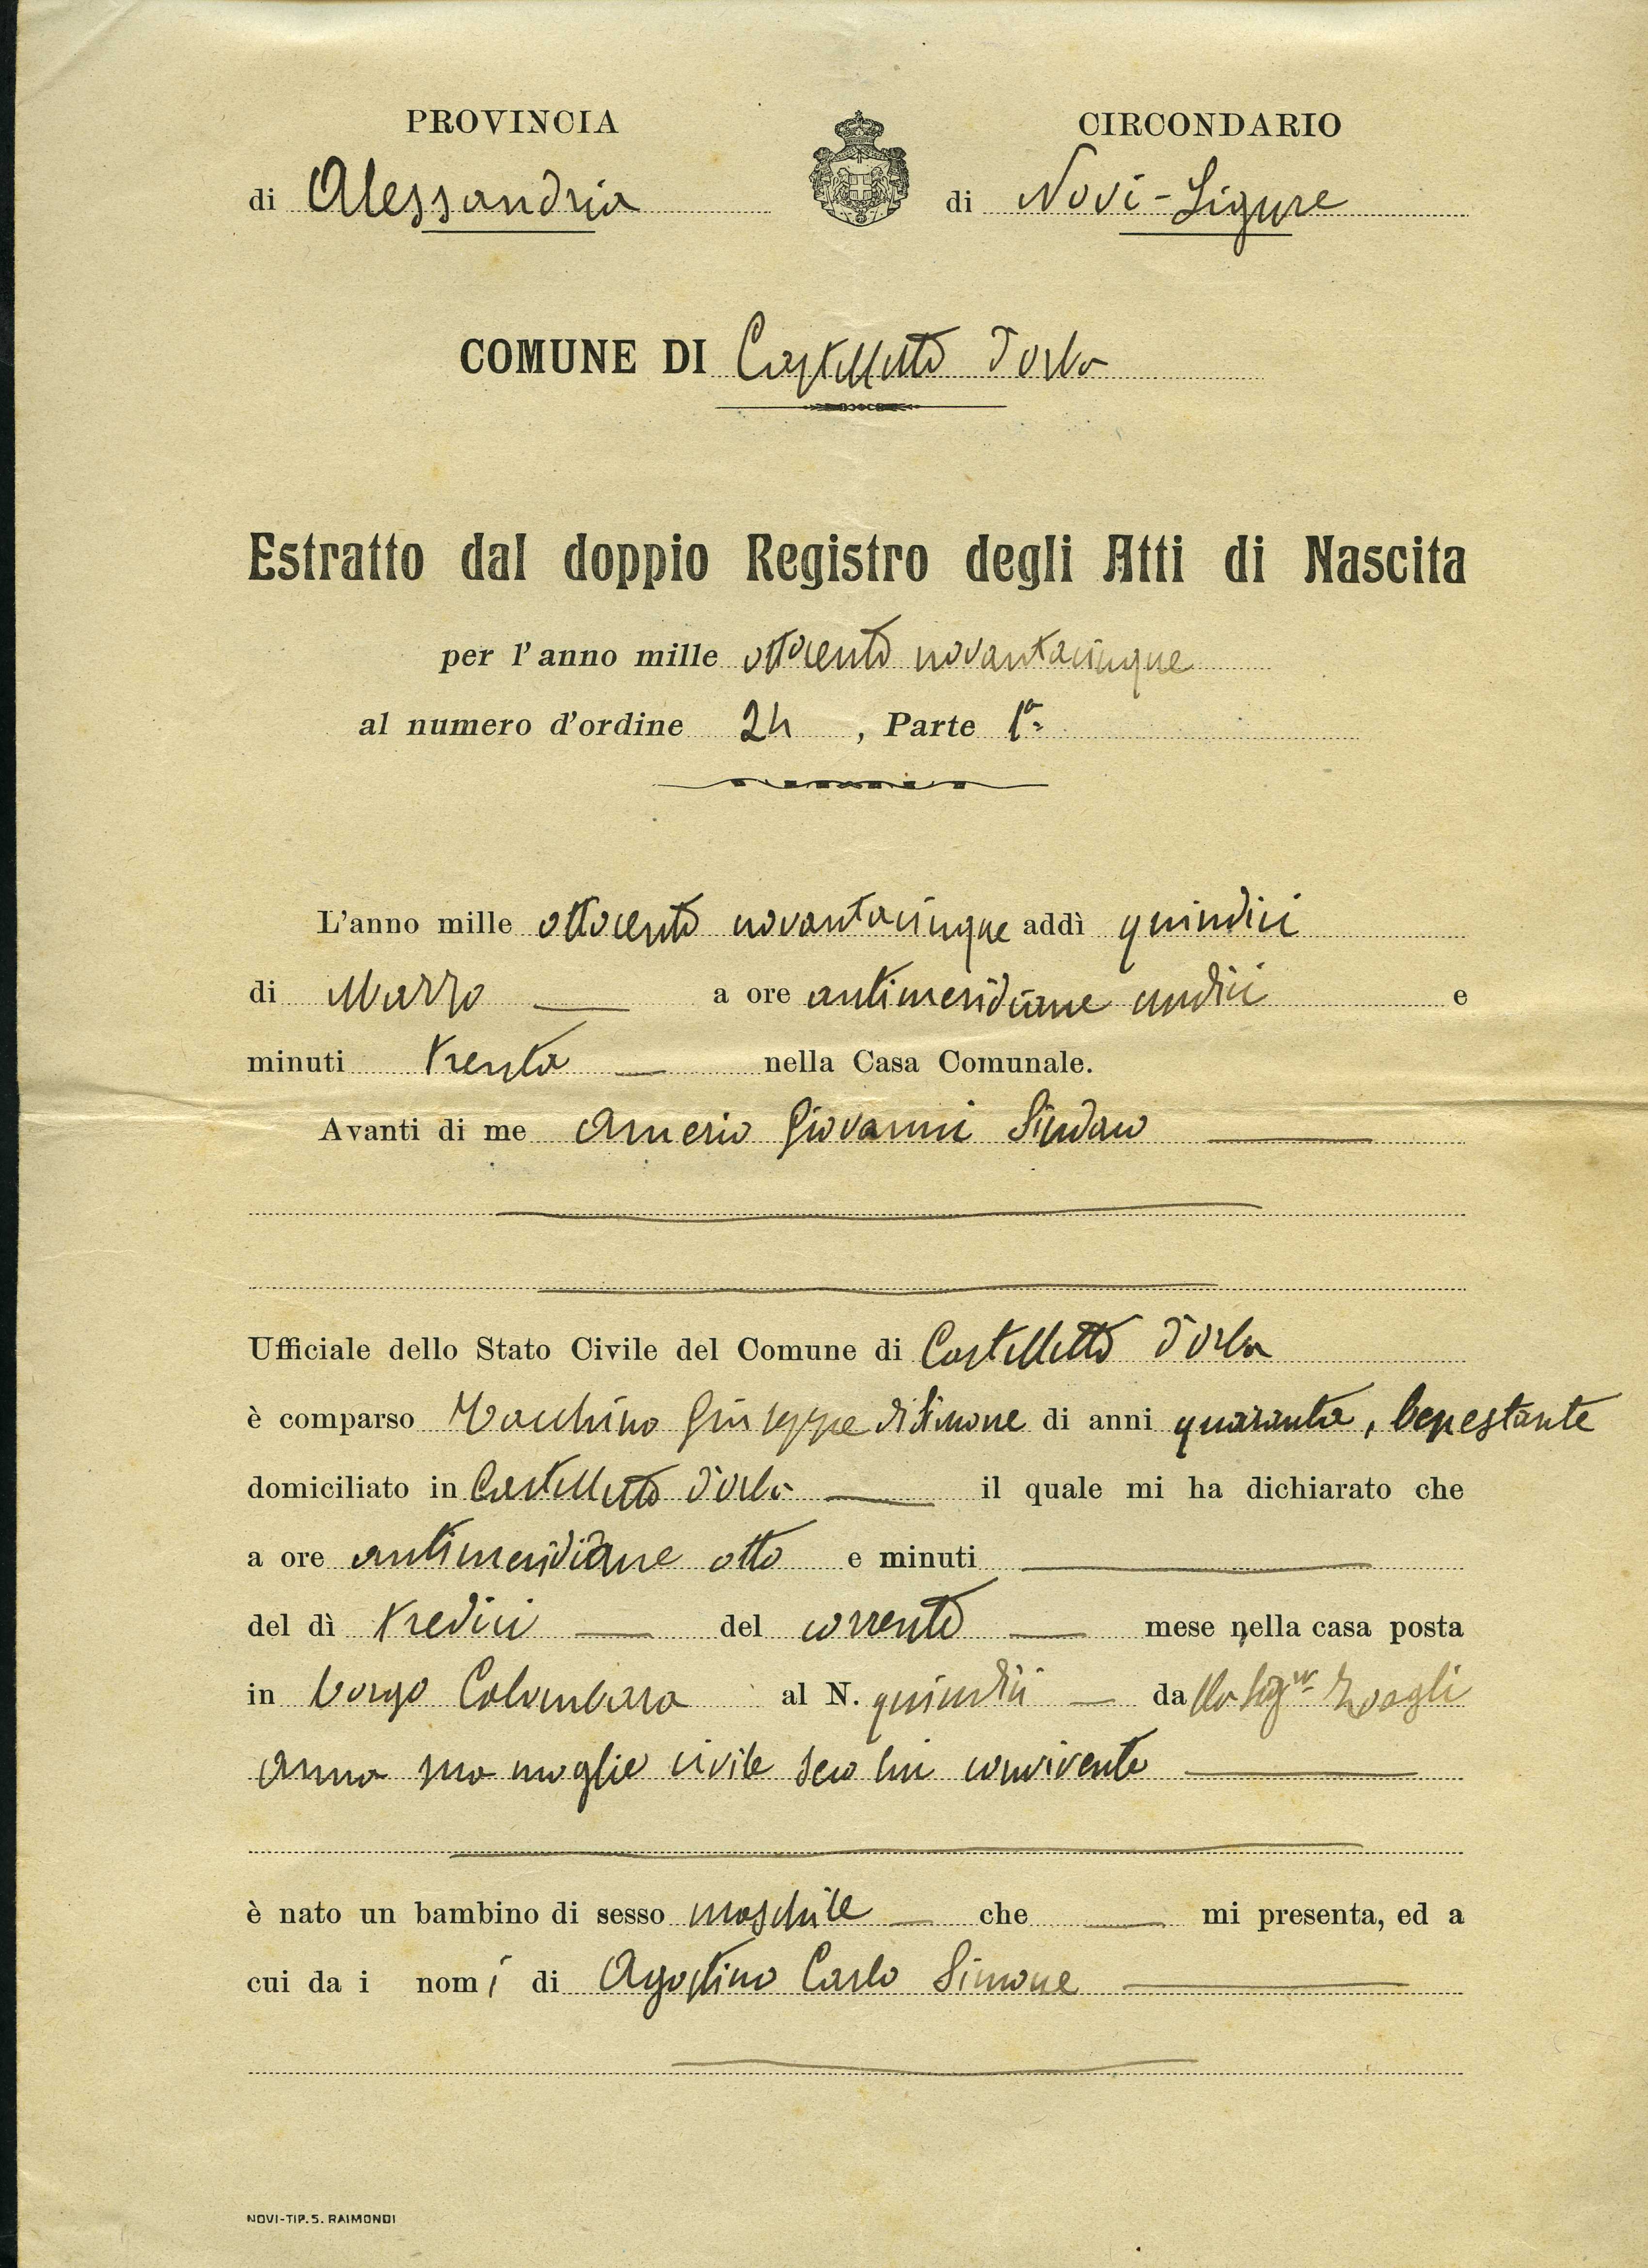 PROVINCIA CIRCONDARIO
di Alessandria di Novi-Ligure
COMUNE DI Castelletto d'orba
Estratto dal doppio Registro degli Atti di Nascita
per l'anno mille ottocento novantacinque
al numero d'ordine 24, Parte 1ª
L'anno mille ottocento novantacinque addì quindici
di Marzo a ore antimeridiane undici e
minuti trenta nella Casa Comunale.
Avanti di me Amerio Giovanni Sindaco
Ufficiale dello Stato Civile del Comune di Castelletto d'orba
è comparso Giuseppe di Simone di anni quaranta, benestante
domiciliato in Castelletto d'orba il quale mi ha dichiarato che
a ore antimeridiane otto e minuti
del dì tredici del corrente mese nella casa posta
in borgo Colombara al N. quindici dalla Sigra
Anna sua moglie civile seco lui convivente
è nato un bambino di sesso maschile che mi presenta, ed a
cui da i nomi di Agostino Carlo Simone
NOVI-TIP. S. RAIMONDI